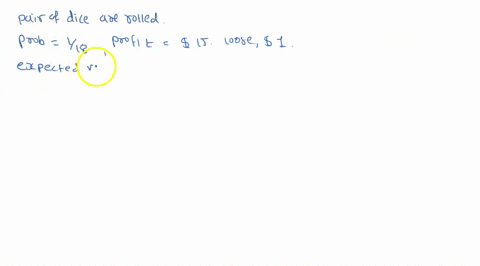 pair of dice are rolled.
prob = 1/18, profit = $ 15. loose, $ 1.
expected v